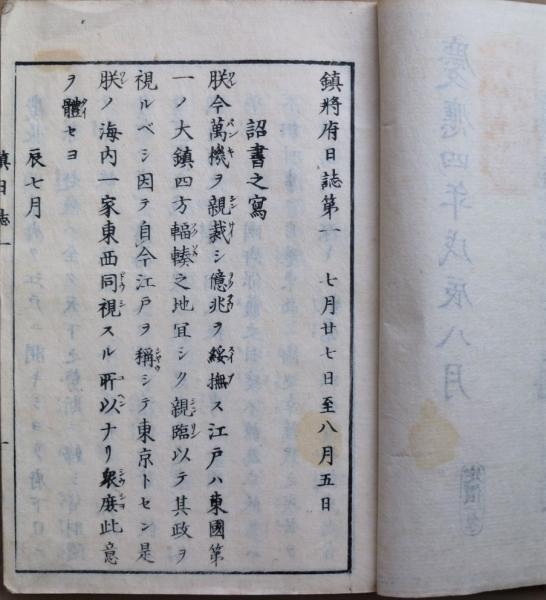 慶應四年戊辰八月
鎮將府日誌第一 七月廿七日至八月五日
詔書之寫
朕今萬機ヲ親裁シ億兆ヲ綏撫ス江戸ハ東國第
一ノ大鎮四方輻輳之地宜シク親臨以テ其政ヲ
視ルベシ因テ自今江戸ヲ稱シテ東京トセン是
朕ノ海内一家東西同視スル所以ナリ衆庶此意
ヲ體セヨ
辰七月
鎮日誌一
一